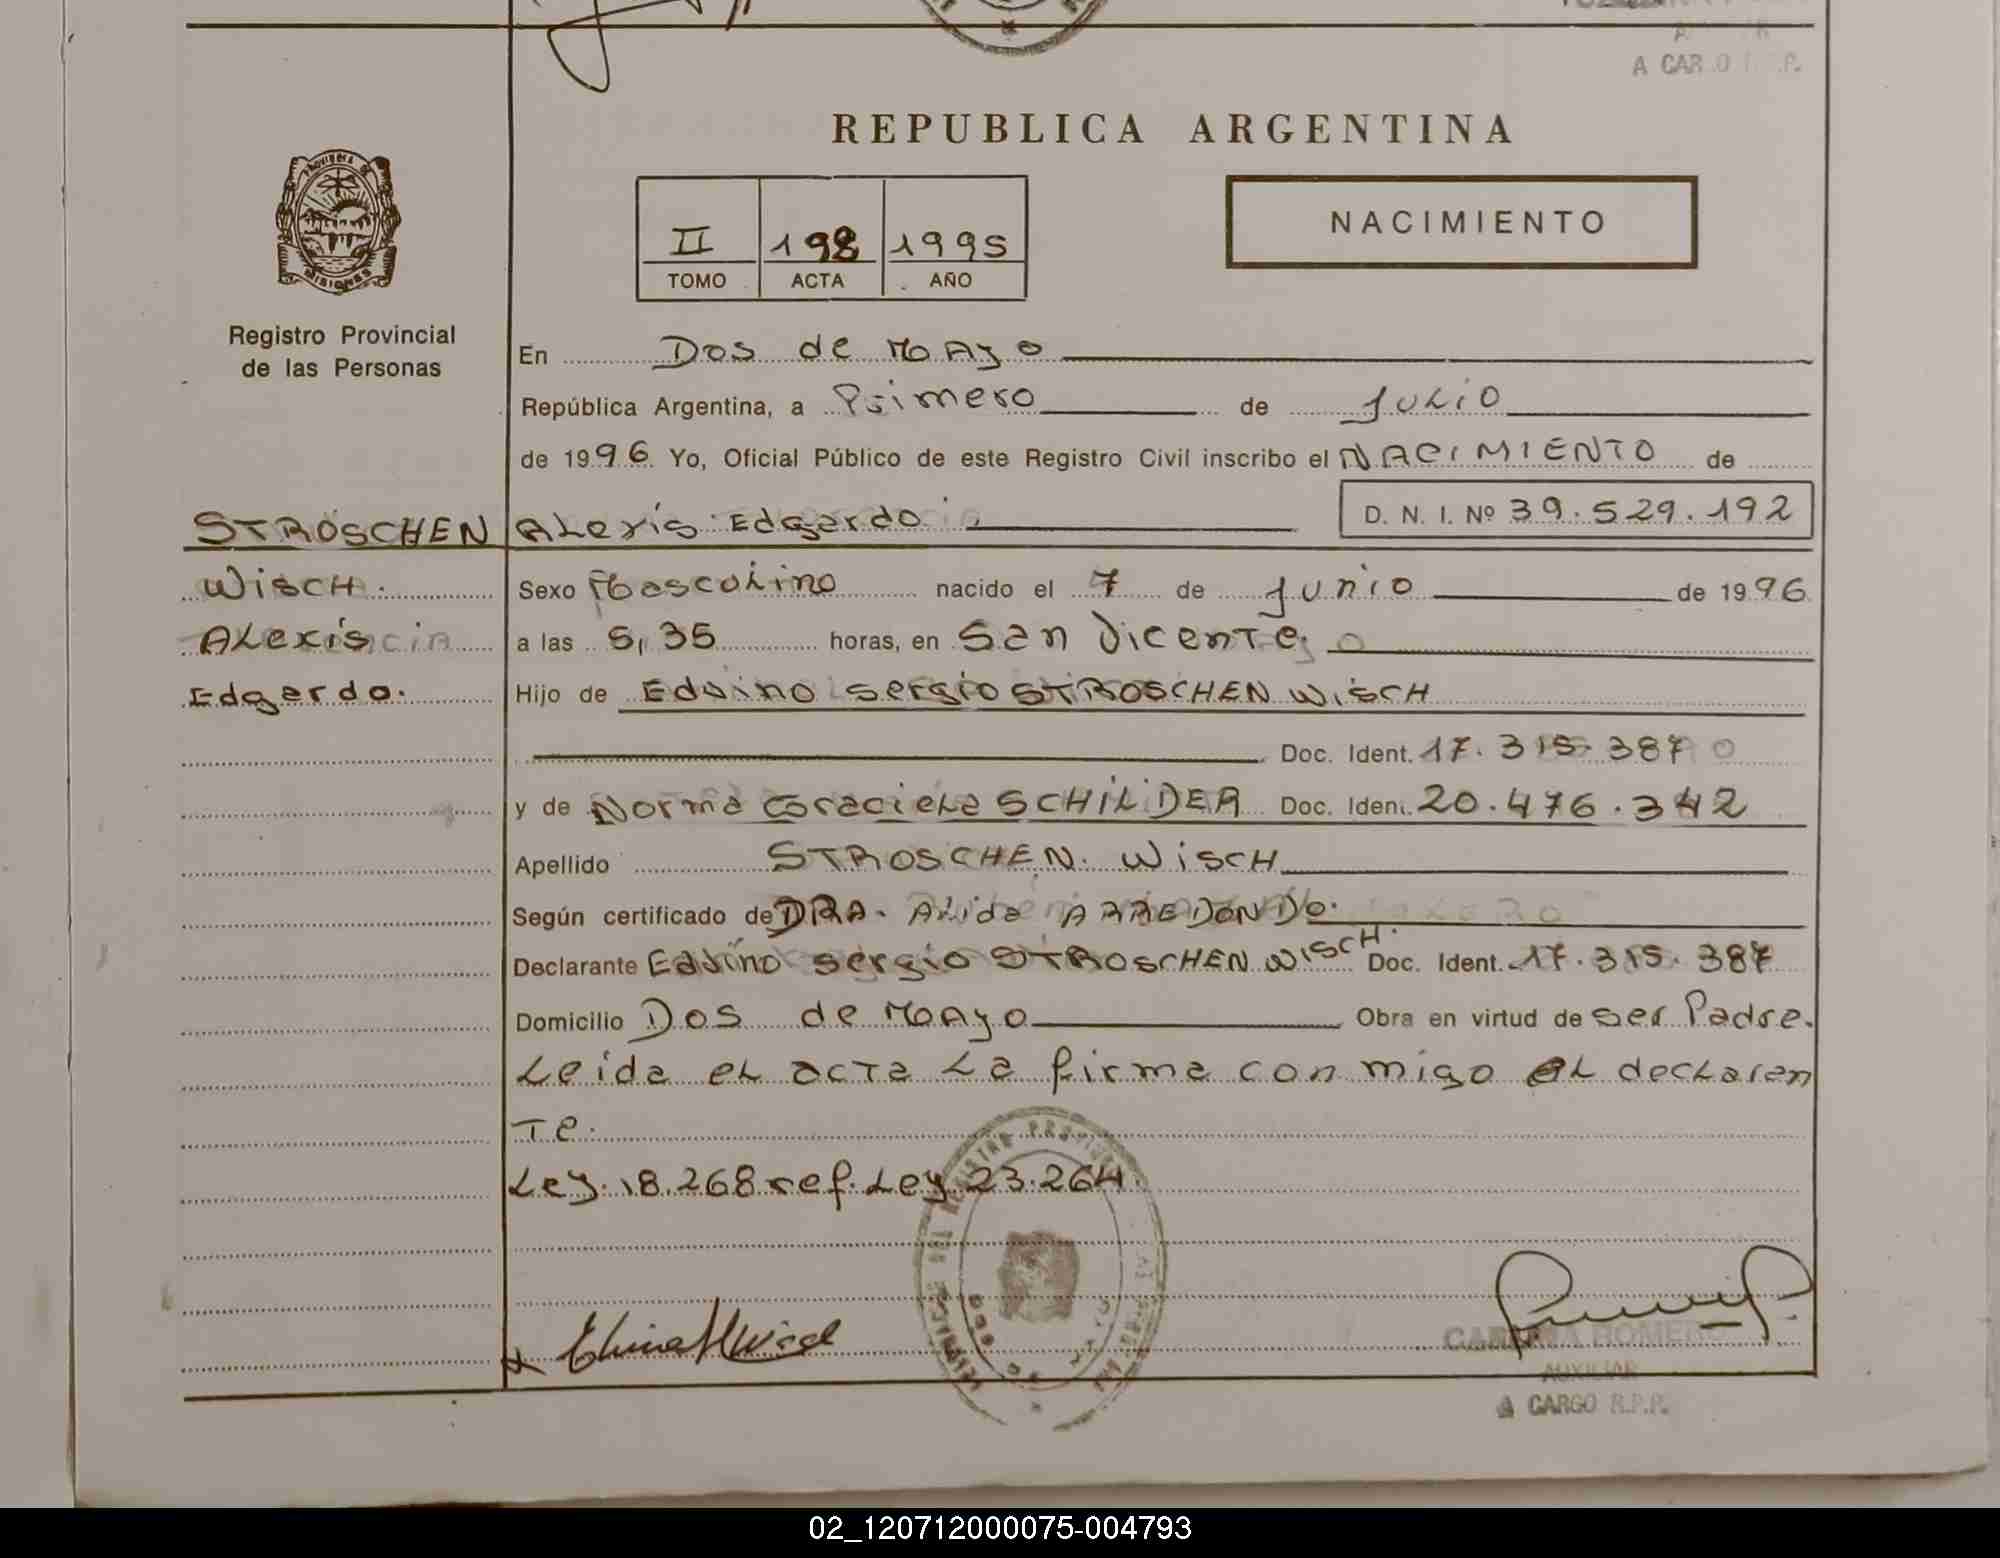 A CAR O P.
REPUBLICA ARGENTINA
PROVINCIA DE MISIONES
II 198 1995
TOMO ACTA AÑO
NACIMIENTO
Registro Provincial
de las Personas
En Dos de Mayo
República Argentina, a Primero de Julio
de 1996 Yo, Oficial Público de este Registro Civil inscribo el NACIMIENTO de
STROSCHEN Alexis Edgardo D. N. I. Nº 39.529.192
Wisch. Sexo Mascolino nacido el 7 de Junio de 1996
Alexis a las 5,35 horas, en San Vicente.
Edgardo. Hijo de Edvino Sergio STROSCHEN WISCH
Doc. Ident. 17.315.387
y de Norma Graciela SCHILDER Doc. Iden. 20.476.342
Apellido STROSCHEN. WISCH
Según certificado de DRA. Alida ARREDONDO.
Declarante Edvino Sergio STROSCHEN WISCH. Doc. Ident. 17.315.387
Domicilio Dos de Mayo Obra en virtud de ser Padre.
Leida el acta la firma con migo el declaran
te.
Ley. 18.268 ref. Ley 23.264.
ROMERO
AUXILIAR
A CARGO R.P.P.
02_120712000075-004793